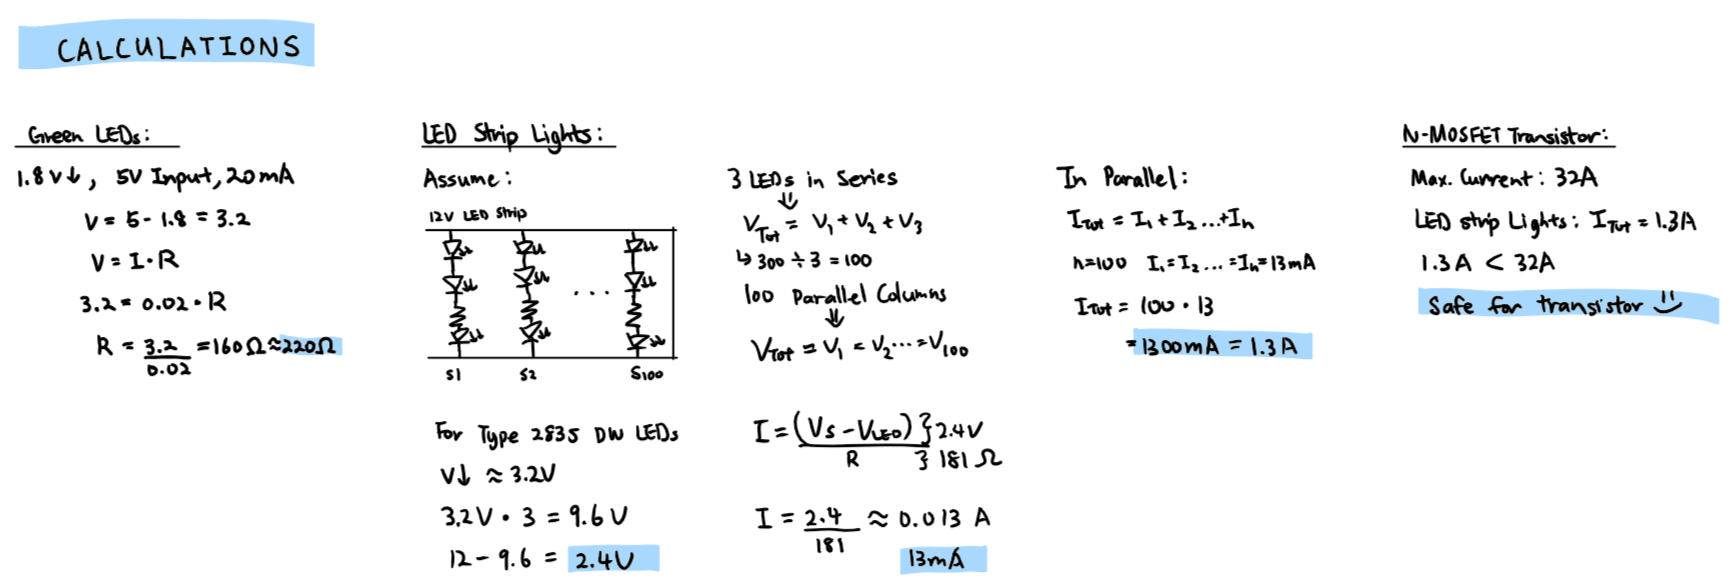 CALCULATIONS
Green LEDs:
1.8V↓, 5V Input, 20mA
V = 5 - 1.8 = 3.2
V = I・R
3.2 = 0.02・R
R = 3.2 / 0.02 = 160Ω ≈ 220Ω
LED Strip Lights:
Assume:
12V LED Strip
...
S1 S2 S100
For Type 2835 DW LEDs
V↓ ≈ 3.2V
3.2V・3 = 9.6V
12 - 9.6 = 2.4V
3 LEDs in Series
⇓
VTot = V1 + V2 + V3
↳ 300 ÷ 3 = 100
100 Parallel Columns
⇓
VTot = V1 = V2 ... = V100
I = (Vs - VLED) / R } 2.4V } 181 Ω
I = 2.4 / 181 ≈ 0.013 A
13mA
In Parallel:
ITot = I1 + I2 ... + In
n=100 I1 = I2 ... = In = 13mA
ITot = 100・13
= 1300mA = 1.3A
N-MOSFET Transistor:
Max. Current: 32A
LED Strip Lights: ITot = 1.3A
1.3A < 32A
Safe for transistor :)